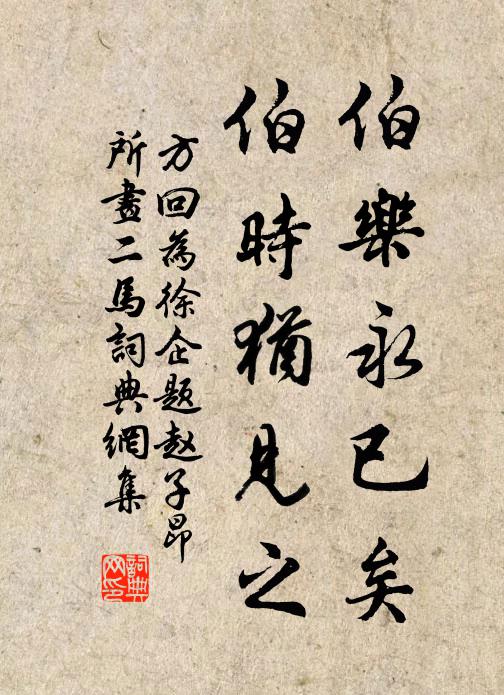 伯樂永已矣
伯時猶見之
方回為徐企題赵子昂
所畫二馬詞典網集
詞典网印